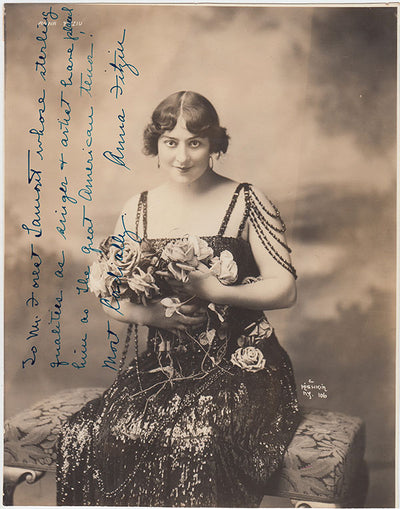 ANNA FITZIU
To Mr. Forest Lamont whose sterling
qualities as singer & artist have placed
him as "The great American tenor"!
Most cordially
Anna Fitziu
MISHKIN
N.Y. 106